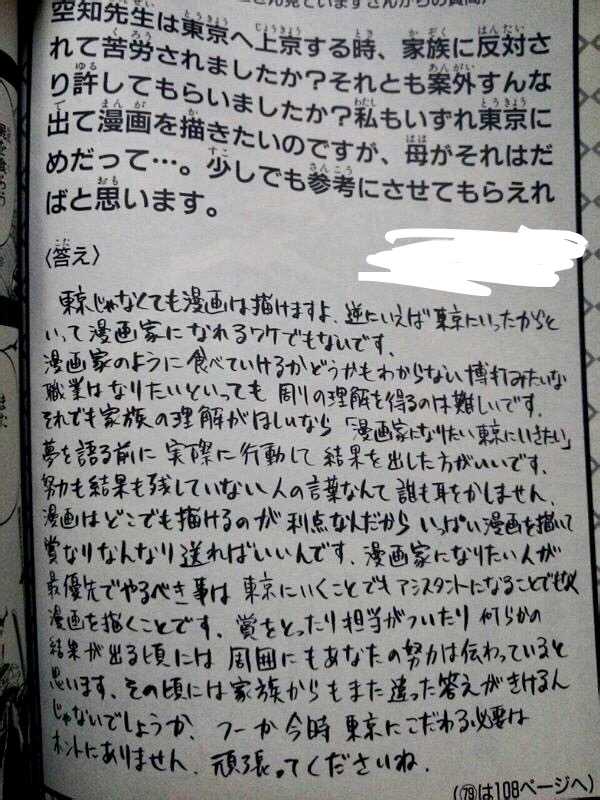 さん見ていますさんからの質問)
空知先生は東京へ上京する時、家族に反対さ
れて苦労されましたか?それとも案外すんな
り許してもらいましたか?私もいずれ東京に
出て漫画を描きたいのですが、母がそれはだ
めだって…。少しでも参考にさせてもらえれ
ばと思います。
〈答え〉
東京じゃなくても漫画は描けますよ、逆にいえば東京にいったからと
いって漫画家になれるワケでもないです。
漫画家のように食べていけるかどうかもわからない博打みたいな
職業はなりたいといっても周りの理解を得るのは難しいです。
それでも家族の理解がほしいなら「漫画家になりたい東京にいきたい」
夢を語る前に実際に行動して結果を出した方がいいです。
努力も結果も残していない人の言葉なんて誰も耳をかしません。
漫画はどこでも描けるのが利点なんだからいっぱい漫画を描いて
賞なりなんなり送ればいいんです、漫画家になりたい人が
最優先でやるべき事は東京にいくことでもアシスタントになることでもなく
漫画を描くことです、賞をとったり担当がついたり何らかの
結果が出る頃には周囲にもあなたの努力は伝わっていると
思います、その頃には家族からもまた違った答えがきけるん
じゃないでしょうか、フーか今時東京にこだわる必要は
ホントにありません、頑張ってくださいね。
(79は108ページへ)